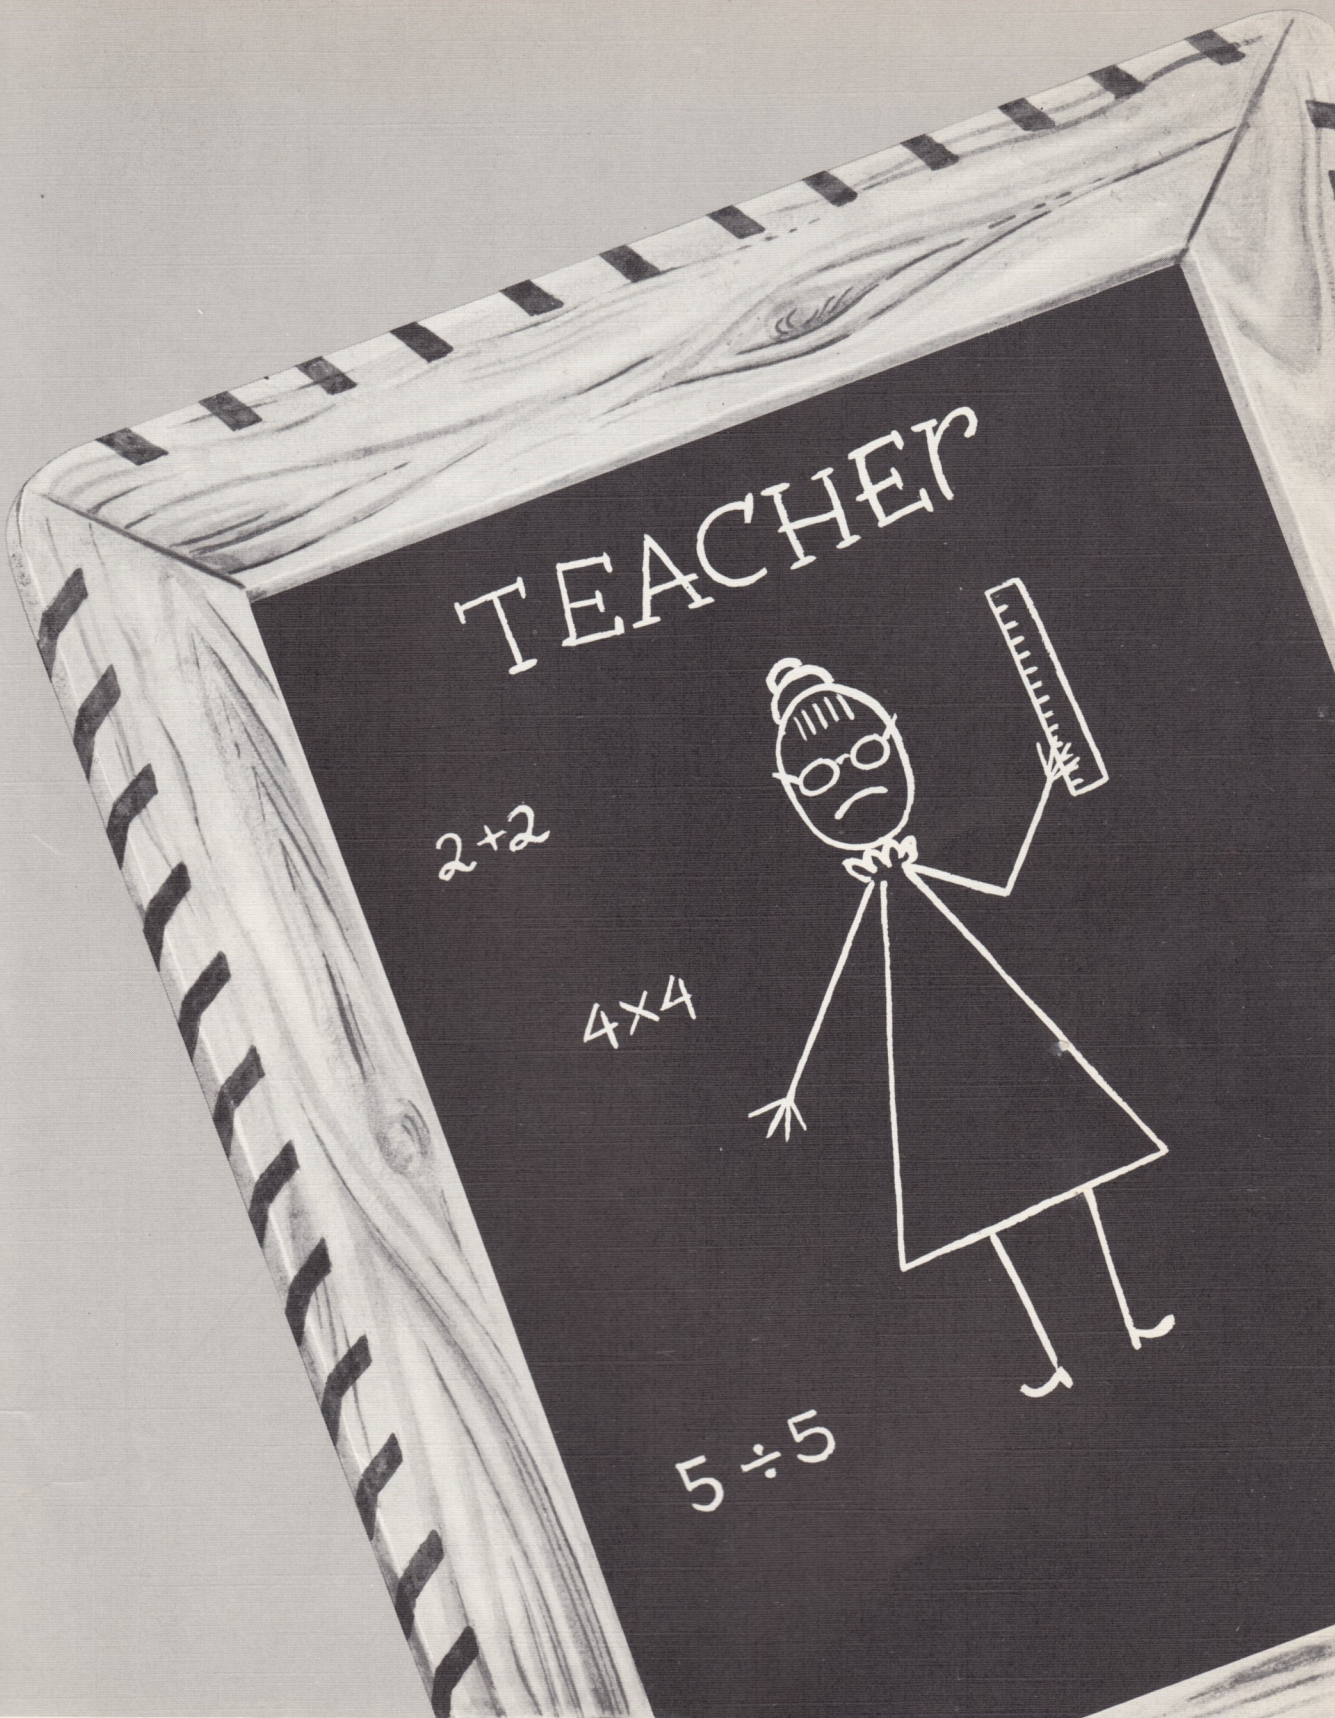 TEACHEr
2+2
4×4
5÷5